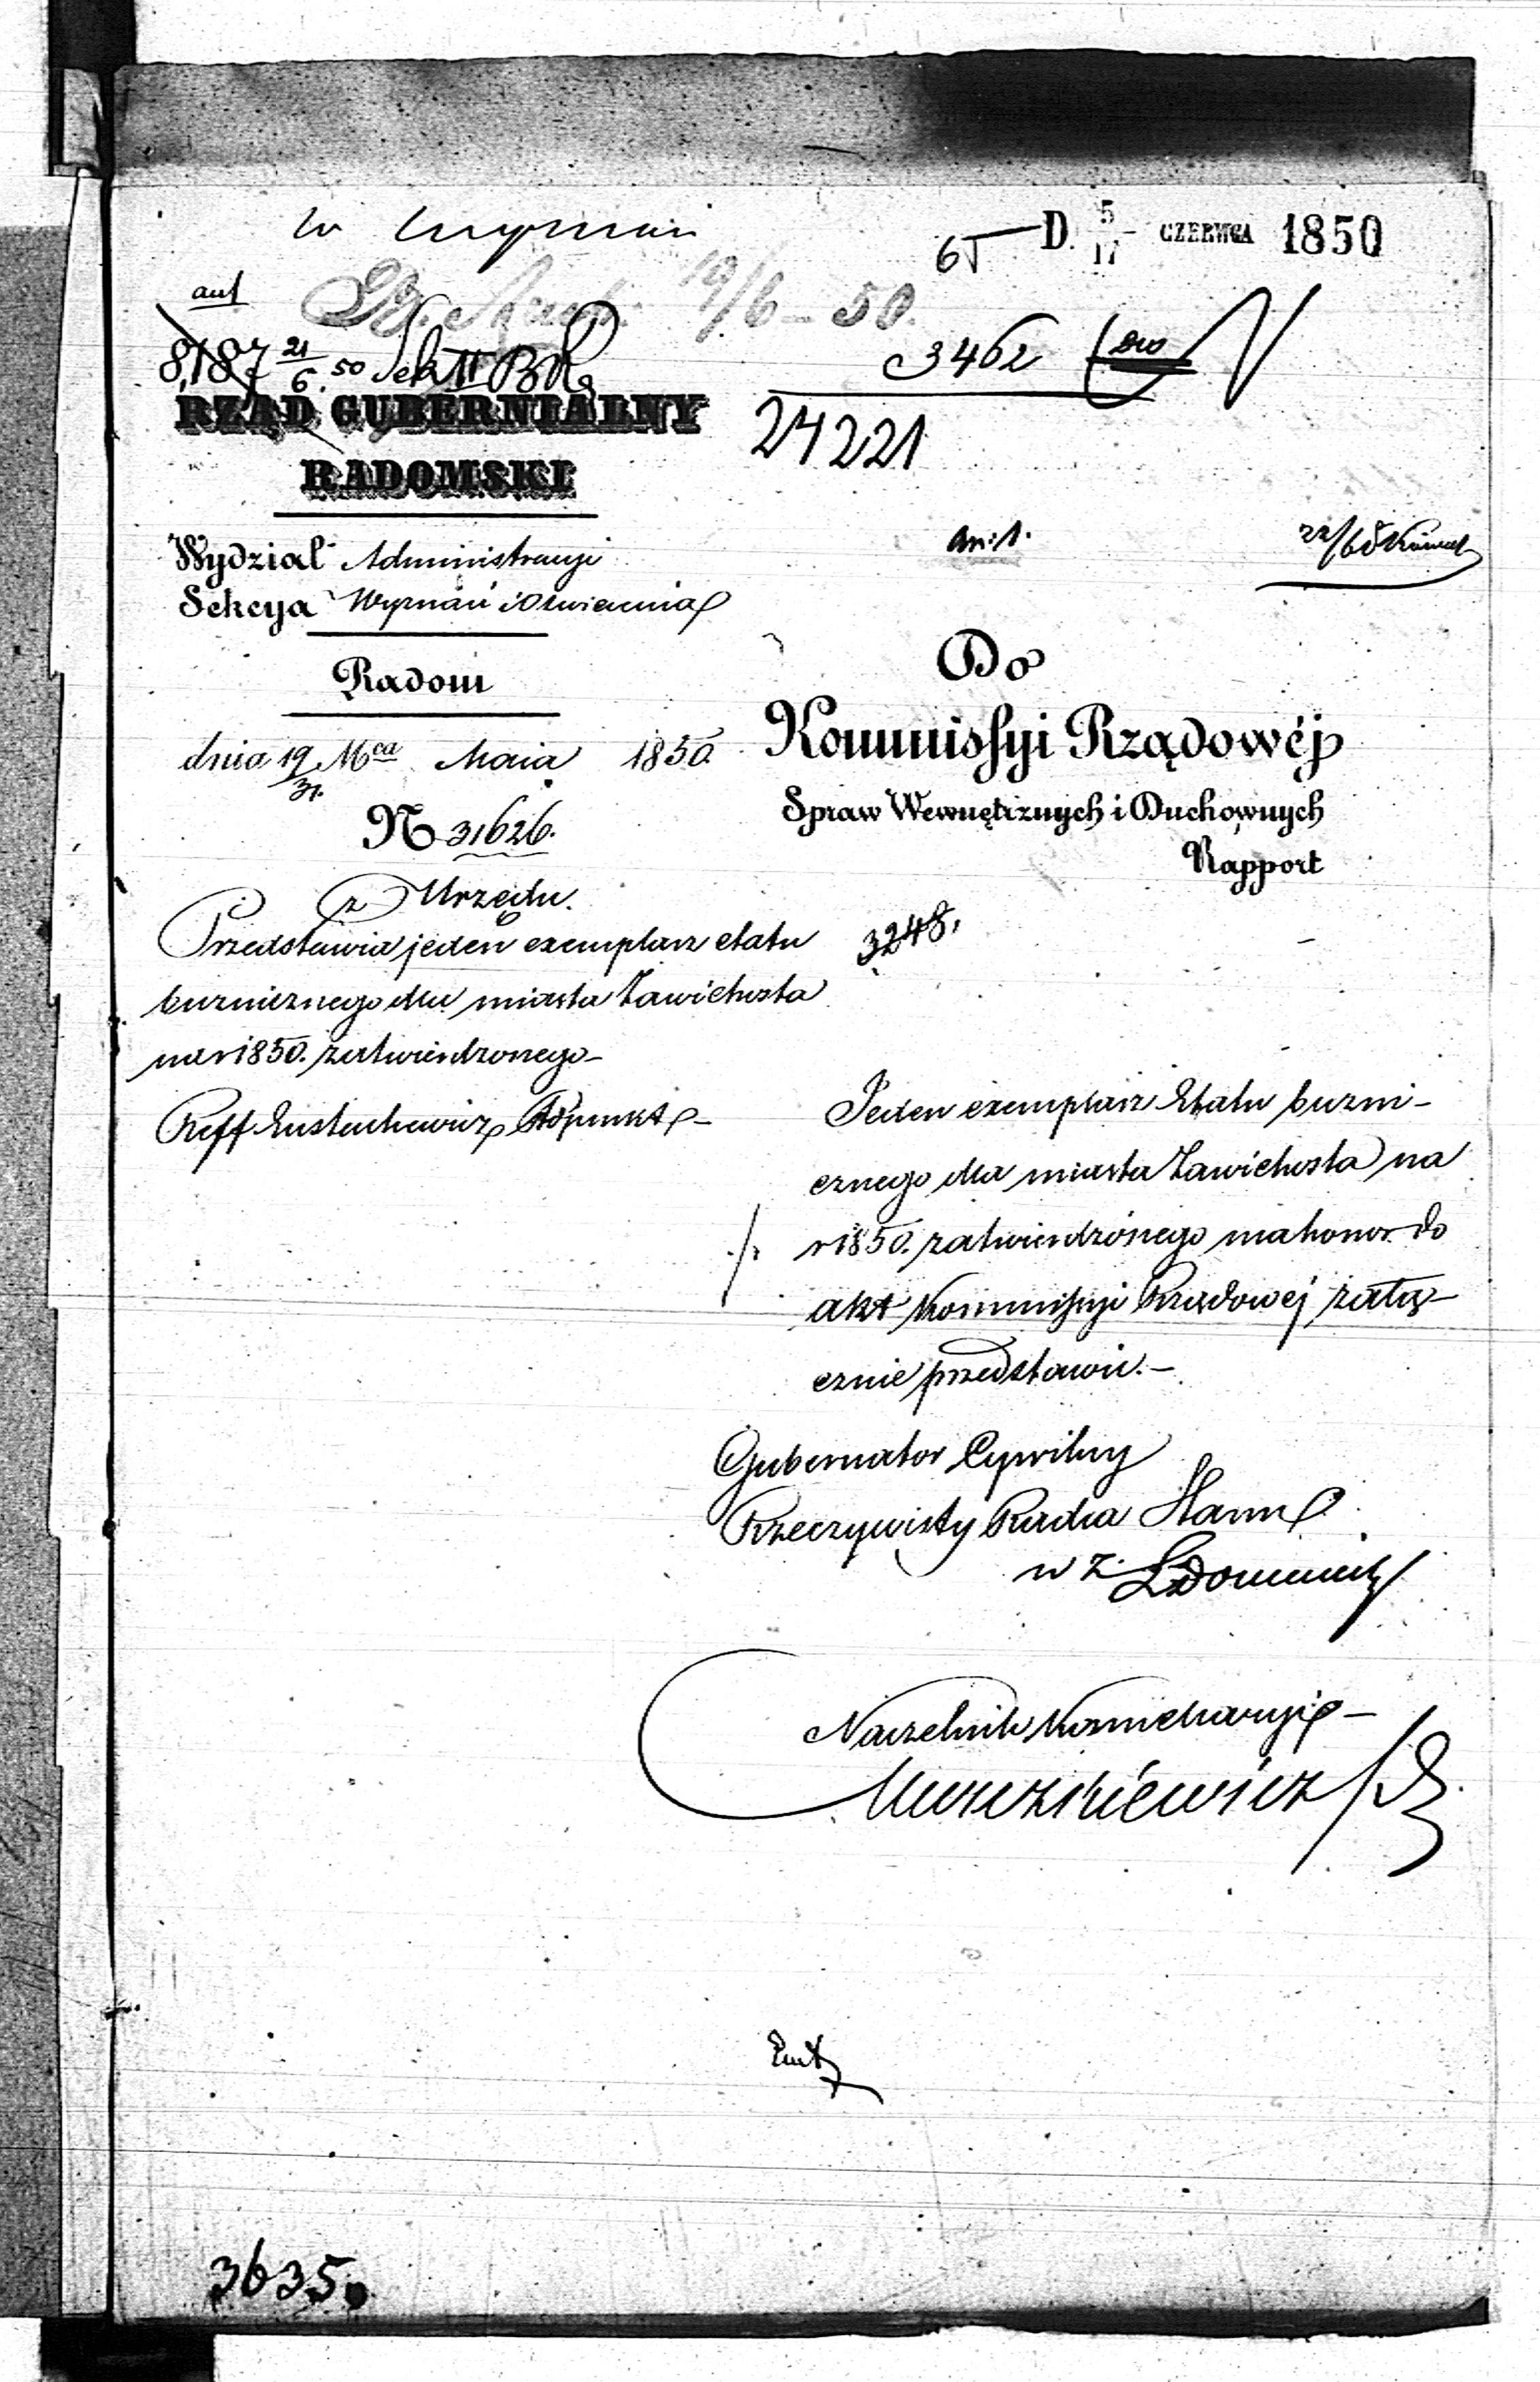 W
65 D. 5/17 CZERWCA 1850
19/6 – 50.
8187 21/6 50 Sek II
3462
24221
RZĄD GUBERNIALNY
RADOMSKI
Wydział Administracyi
Sekcya Wyznań i Oświecenia
Radom
dnia 19/31 Mca Maia 1850
N 31626.
an: 1.
22/6
Do
Kommissyi Rządowéj
Spraw Wewnętrznych i Duchownych
Rapport
z Urzędu.
Przedstawia jeden exemplarz etatu
buznicznego dla miasta Zawichosta
na r 1850. zatwierdzonego –
Reff Eustachewicz Adjunkt –
3248.
Jeden exemplarz Etatu buzni–
cznego dla miasta Zawichosta na
r 1850. zatwierdzonego ma honor do
akt Kommissyi Rządowéj załą–
cznie przedstawić. –
Gubernator Cywilny
Rzeczywisty Radca Stanu
w z.
Naczelnik Kancellaryi –
3635.